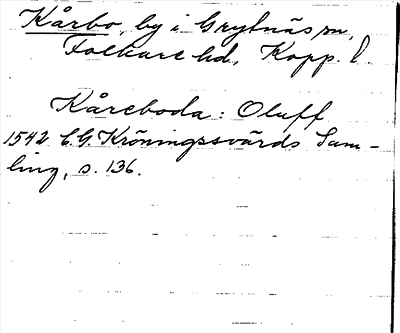 Kårbo, by i Grytnäs sn,
Folkare hd, Kopp. l.
Kåreboda: Oluff
1542 C.G. Kröningssvärds Sam-
ling, s. 136.